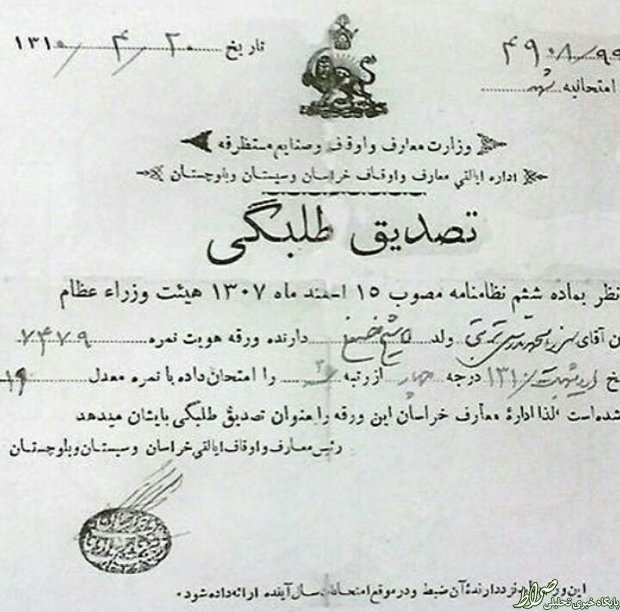 تاریخ ۲۰/۴/۱۳۱۰
۴۹۰۸/۹۹
امتحانیه
وزارت معارف و اوقاف و صنایع مستظرفه
اداره ایالتی معارف و اوقاف خراسان و سیستان و بلوچستان
تصدیق طلبگی
نظر بماده ششم نظامنامه مصوب ۱۵ اسفند ماه ۱۳۰۷ هیئت وزراء عظام
آقای ولد شیخ دارنده ورقه هویت نمره ۷۴۷۹
اردیبهشت ۱۳۱۰ درجه چهار از رتبه را امتحان داده با نمره معدل
شده است لذا ادارهٔ معارف خراسان این ورقه را بعنوان تصدیق طلبگی بایشان میدهد
رئیس معارف و اوقاف ایالتی خراسان و سیستان و بلوچستان
دارندهٔ آن ضبط و در موقع امتحانات سال آینده ارائه داده شود
صراط
پایگاه خبری تحلیلی